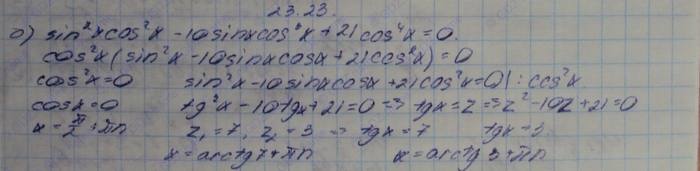 23.23.
б) sin²x cos²x - 10 sinx cos³x + 21 cos⁴x = 0
cos²x (sin²x - 10 sinx cosx + 21 cos²x) = 0
cos²x = 0 sin²x - 10 sinx cosx + 21 cos²x = 0 | : cos²x
cosx = 0 tg²x - 10tgx + 21 = 0 => tgx = z => z² - 10z + 21 = 0
x = π/2 + πn z₁ = 7, z₂ = 3 => tgx = 7 tgx = 3
x = arctg 7 + πn x = arctg 3 + πn